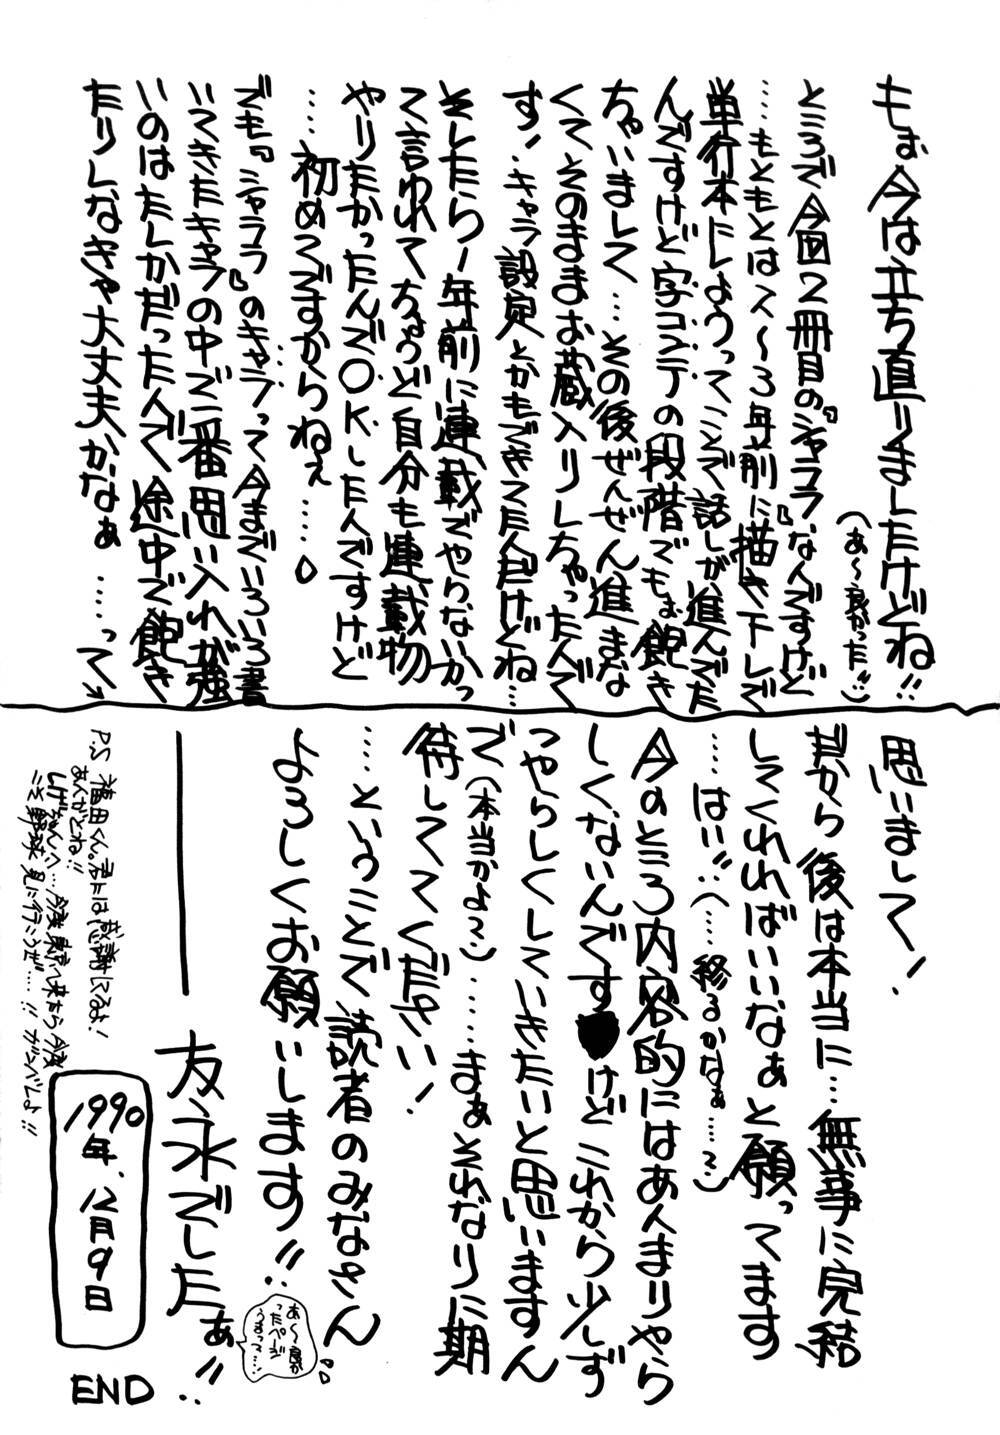 もぉ今は立ち直りましたけどね!!
(あ〜良かった…)
ところで今回2冊目の『シャララ』なんですけど
……もともとは2〜3年前に描き下しで
単行本にしようってことで話しが進んでた
んですけど字コンテの段階でもぉ飽き
ちゃいまして…その後ぜんぜん進まな
くてそのままお蔵入りしちゃったんで
す!キャラ設定とかもできてたんだけどね…
そしたら1年前に連載でやらないかっ
て言われてちょうど自分も連載物
やりたかったんでO.K.したんですけど
……初めてですからねぇ……
でも『シャララ』のキャラって今までいろいろ書
いてきたキャラの中で一番思い入れが強
いのはたしかだったんで途中で飽き
たりしなきゃ大丈夫かなぁ……って
思いまして!
だから後は本当に…無事に完結
してくれればいいなぁと願ってます
……はい!!(……終るかなぁ……)
今のところ内容的にはあんまりやら
しくないんです♥けどこれから少しず
つやらしくしていきたいと思いますん
で(本当かよ〜)……まぁそれなりに期
待してて下さい!
……ということで読者のみなさん
よろしくお願いします!!
友永でしたぁ!!
あ〜良かったページうまって…
P.S 福田くん。君には感謝してるよ!
あんがとね!!
しげちゃんへ…今度東京へ来たら今度
こそ野球見に行こうぜ……!! ガンバレよ!!
1990年、12月9日
END